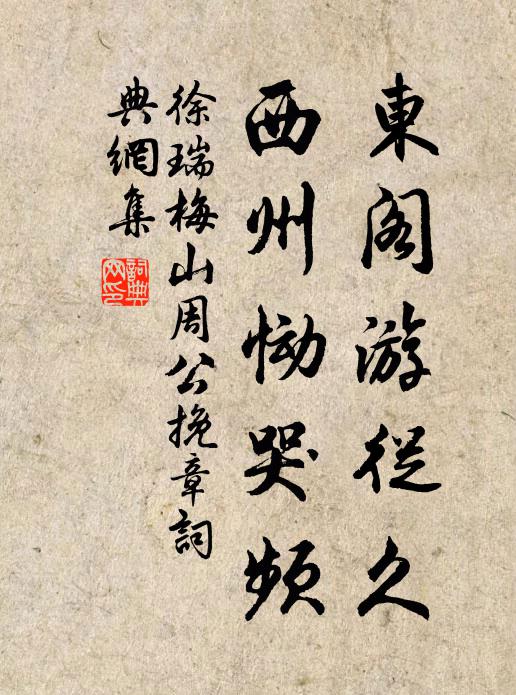 東閣游從久
西州慟哭頻
徐瑞梅山周公挽章詞
典網集
詞典
网印